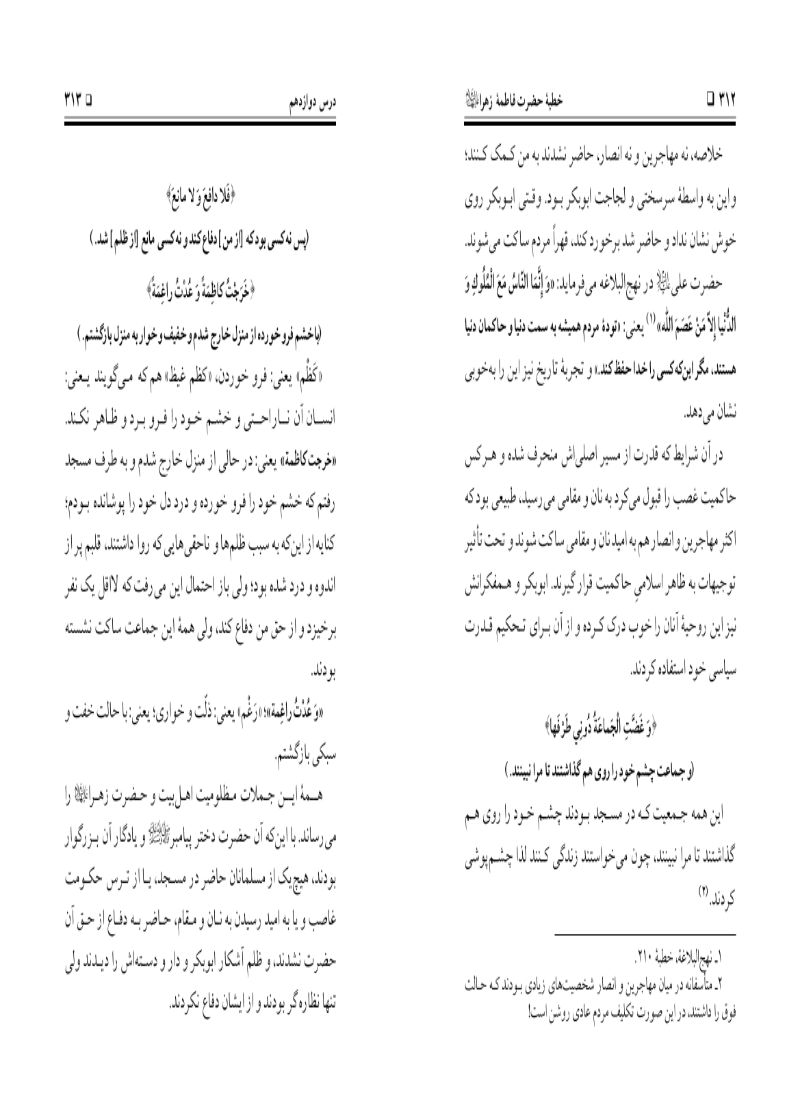 ۳۱۲ ❑ خطبهٔ حضرت فاطمهٔ زهرا
خلاصه، نه مهاجرین و نه انصار، حاضر نشدند به من کمک کنند؛
و این به واسطهٔ سرسختی و لجاجت ابوبکر بود. وقتی ابوبکر روی
خوش نشان نداد و حاضر شد برخورد کند، قهراً مردم ساکت می‌شوند.
حضرت علی در نهج‌البلاغه می‌فرماید: «وَ إِنَّمَا النَّاسُ مَعَ الْمُلُوكِ وَ
الدُّنْيا إِلاَّ مَنْ عَصَمَ اللّٰه»(۱) یعنی: «تودهٔ مردم همیشه به سمت دنیا و حاکمان دنیا
هستند، مگر این‌که کسی را خدا حفظ کند.» و تجربهٔ تاریخ نیز این را به‌خوبی
نشان می‌دهد.
در آن شرایط که قدرت از مسیر اصلی‌اش منحرف شده و هرکس
حاکمیت غصب را قبول می‌کرد به نان و مقامی می‌رسید، طبیعی بود که
اکثر مهاجرین و انصار هم به امید نان و مقامی ساکت شوند و تحت تأثیر
توجیهات به ظاهر اسلامیِ حاکمیت قرار گیرند. ابوبکر و همفکرانش
نیز این روحیهٔ آنان را خوب درک کرده و از آن برای تحکیم قدرت
سیاسی خود استفاده کردند.
﴿وَ غَضَّتِ الْجَماعَةُ دُونِي طَرْفَها﴾
(و جماعت چشم خود را روی هم گذاشتند تا مرا نبینند.)
این همه جمعیت که در مسجد بودند چشم خود را روی هم
گذاشتند تا مرا نبینند، چون می‌خواستند زندگی کنند لذا چشم‌پوشی
کردند.(۲)
۱ـ نهج‌البلاغة، خطبهٔ ۲۱۰.
۲ـ متأسفانه در میان مهاجرین و انصار شخصیت‌های زیادی بودند که حالت
فوق را داشتند، در این صورت تکلیف مردم عادی روشن است!
درس دوازدهم ❑ ۳۱۳
﴿فَلا دافِعَ وَ لا مانِعَ﴾
(پس نه کسی بود که [از من] دفاع کند و نه کسی مانع [از ظلم] شد.)
﴿خَرَجْتُ كاظِمَةً وَ عُدْتُ راغِمَةً﴾
(با خشم فرو خورده از منزل خارج شدم و خفیف و خوار به منزل بازگشتم.)
«کَظْم» یعنی: فرو خوردن، «کظم غیظ» هم که می‌گویند یعنی:
انسان آن ناراحتی و خشم خود را فرو برد و ظاهر نکند.
«خرجت کاظمة» یعنی: در حالی از منزل خارج شدم و به طرف مسجد
رفتم که خشم خود را فرو خورده و درد دل خود را پوشانده بودم؛
کنایه از این‌که به سبب ظلم‌ها و ناحقی‌هایی که روا داشتند، قلبم پر از
اندوه و درد شده بود؛ ولی باز احتمال این می‌رفت که لااقل یک نفر
برخیزد و از حق من دفاع کند، ولی همهٔ این جماعت ساکت نشسته
بودند.
«وَ عُدْتُ راغِمة»؛ «رَغْم» یعنی: ذلّت و خواری؛ یعنی: با حالت خفت و
سبکی بازگشتم.
همهٔ این جملات مظلومیت اهل‌بیت و حضرت زهرا را
می‌رساند. با این‌که آن حضرت دختر پیامبر و یادگار آن بزرگوار
بودند، هیچ‌یک از مسلمانان حاضر در مسجد، یا از ترس حکومت
غاصب و یا به امید رسیدن به نان و مقام، حاضر به دفاع از حق آن
حضرت نشدند، و ظلم آشکار ابوبکر و دار و دسته‌اش را دیدند ولی
تنها نظاره‌گر بودند و از ایشان دفاع نکردند.